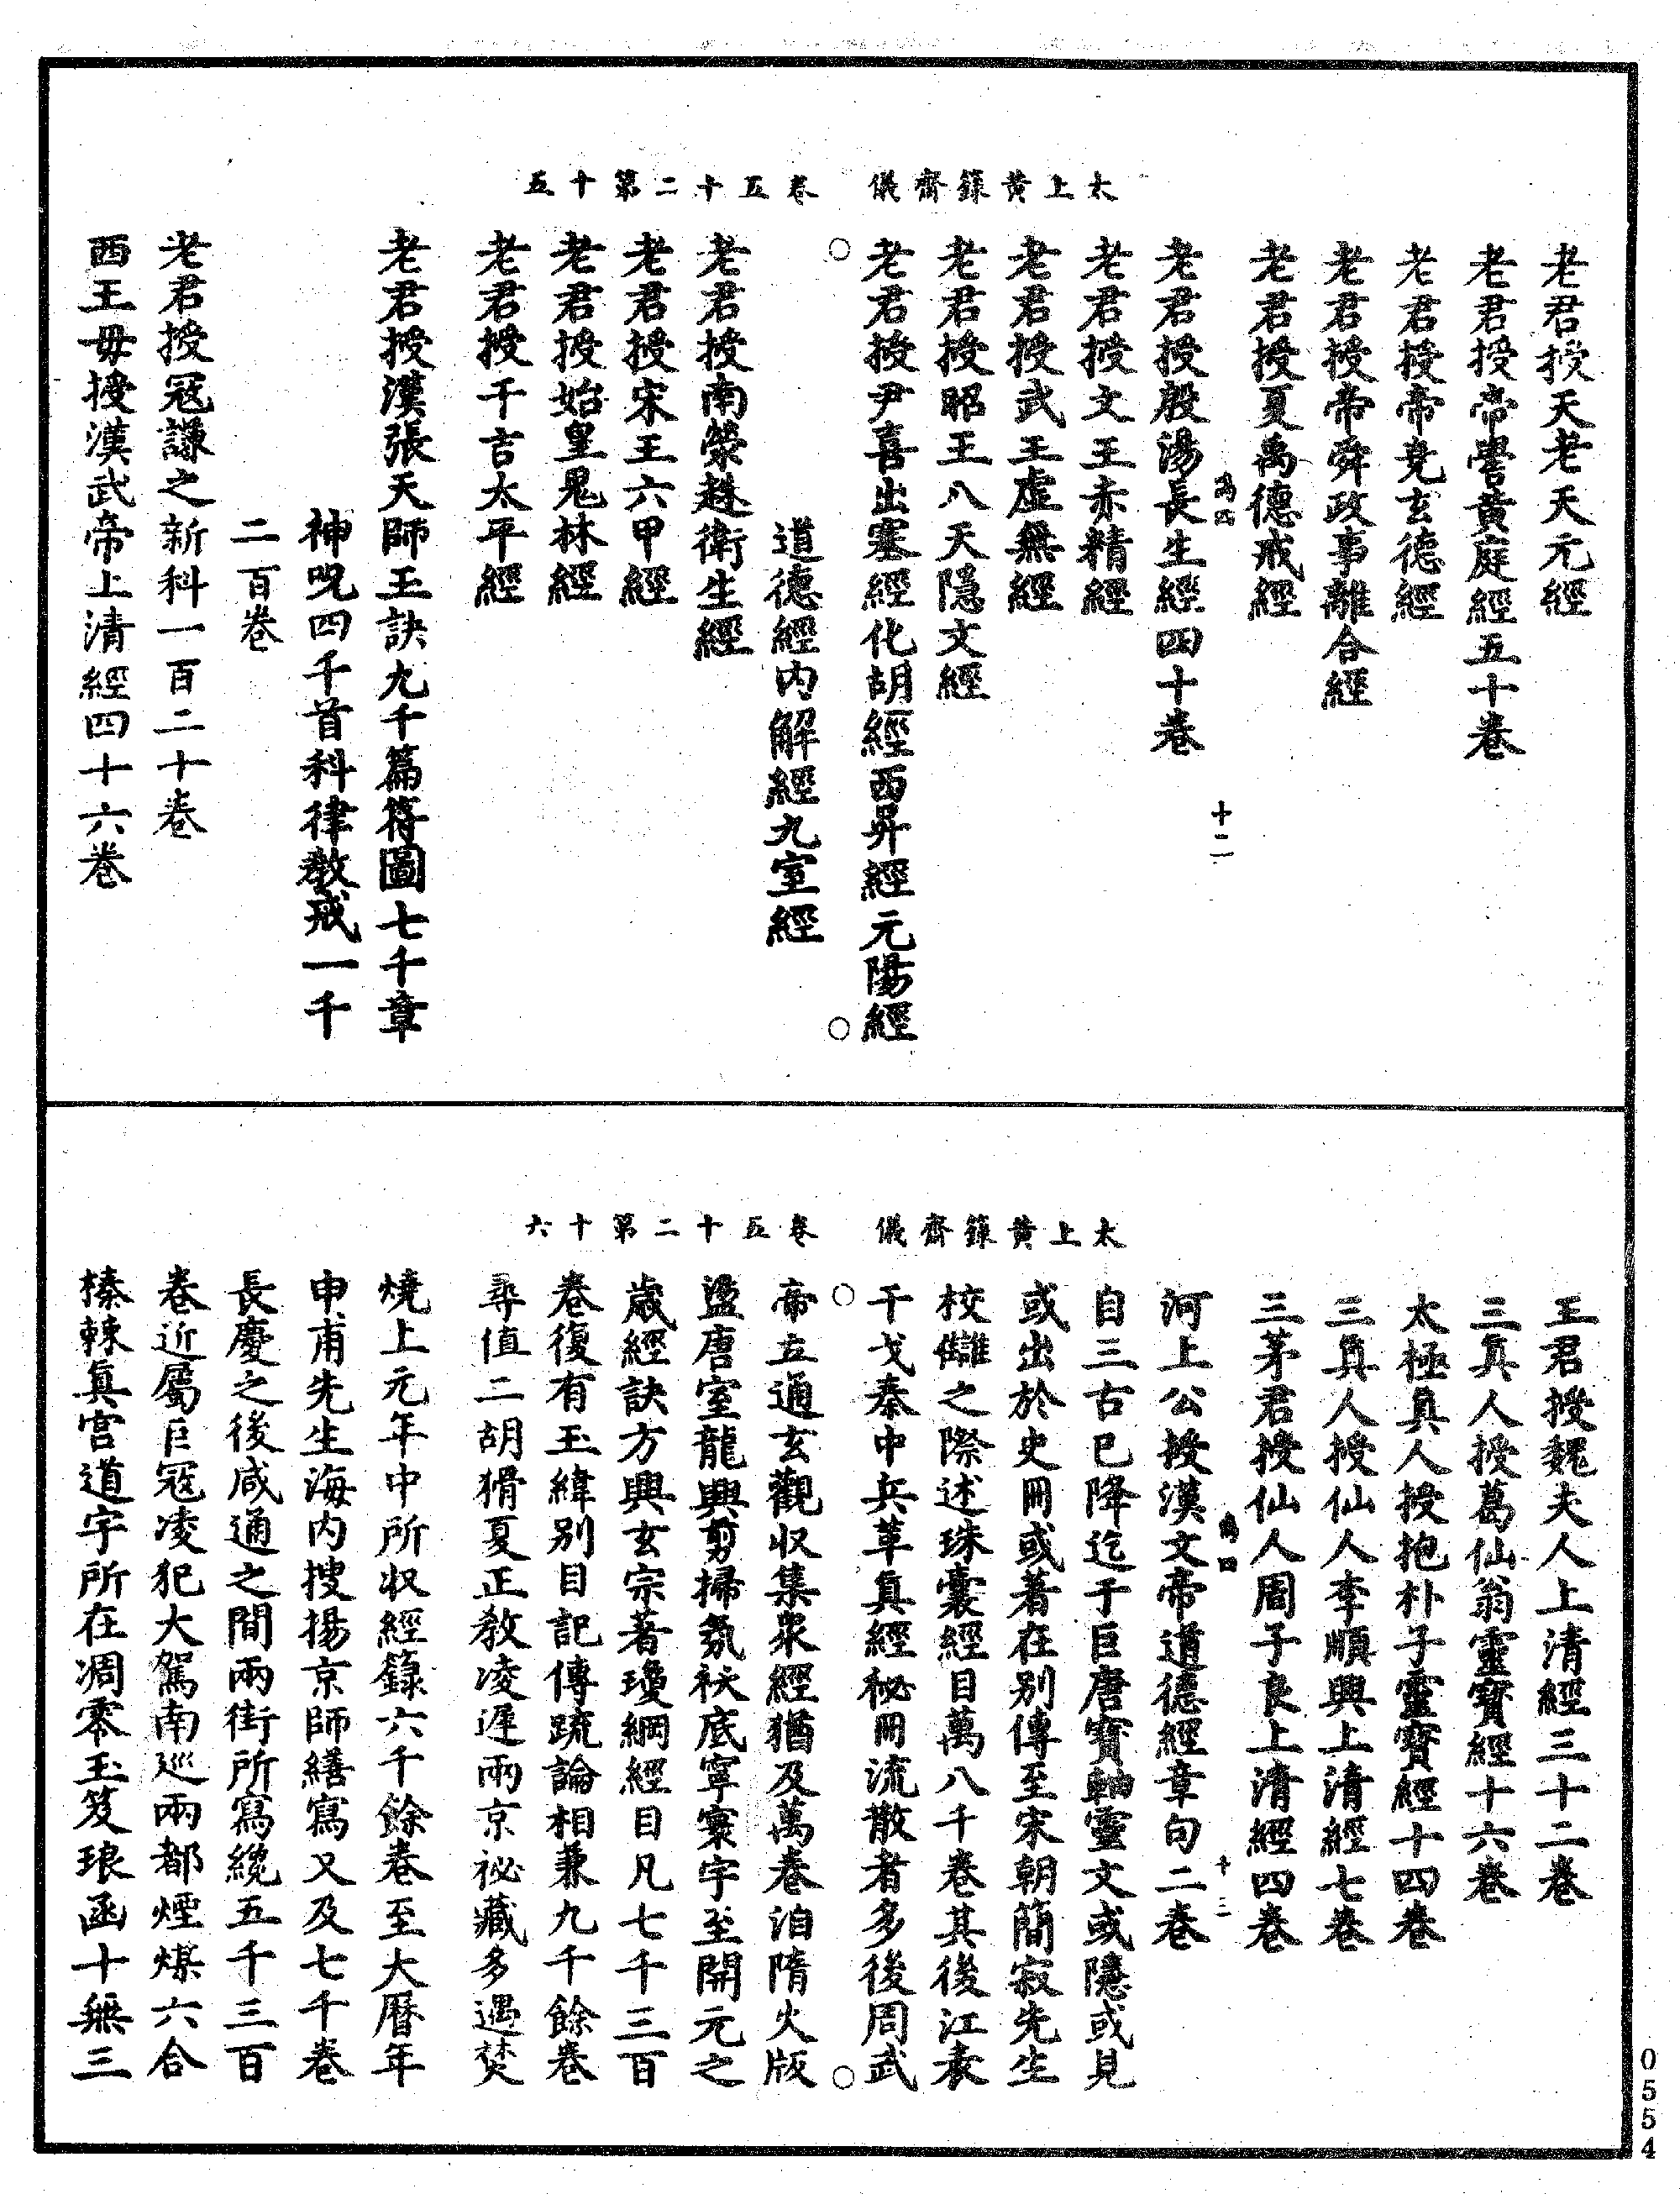 太上黃籙齋儀　卷五十二第十五
老君授天老天元經
老君授帝嚳黃庭經五十卷
老君授帝堯玄德經
老君授帝舜政事離合經
老君授夏禹德戒經
十二
老君授殷湯長生經四十卷
老君授文王赤精經
老君授武王虛無經
老君授昭王八天隱文經
老君授尹喜出塞經化胡經西昇經元陽經
道德經內解經九室經
老君授南榮趎衛生經
老君授宋王六甲經
老君授始皇鬼林經
老君授千吉太平經
老君授漢張天師玉訣九千篇符圖七千章
神呪四千首科律教戒一千
二百卷
老君授冦謙之新科一百二十卷
西王毋授漢武帝上清經四十六卷
太上黃籙齋儀　卷五十二第十六
王君授魏夫人上清經三十二卷
三真人授葛仙翁靈寶經十六卷
太極真人授抱朴子靈寶經十四卷
三真人授仙人李順興上清經七卷
三茅君授仙人周子良上清經四卷
十三
河上公授漢文帝道德經章句二卷
自三古已降迄于巨唐寶軸靈文或隱或見
或出於史冊或著在別傳至宋朝簡寂先生
校讎之際述珠囊經目萬八千卷其後江表
干戈秦中兵革真經秘冊流散者多後周武
帝立通玄觀收集衆經猶及萬卷洎隋火版
盪唐室龍興剪掃氛袄底寧寰宇至開元之
歲經訣方興玄宗著瓊綱經目凡七千三百
卷復有玉緯別目記傳䟽論相兼九千餘卷
尋值二胡猾夏正教凌遲兩京祕藏多遇焚
燒上元年中所收經籙六千餘卷至大曆年
申甫先生海內搜揚京師繕寫又及七千卷
長慶之後咸通之間兩街所寫纔五千三百
卷近屬巨冦凌犯大駕南巡兩都煙煤六合
榛棘真宮道宇所在凋零玉笈琅函十無三
0554